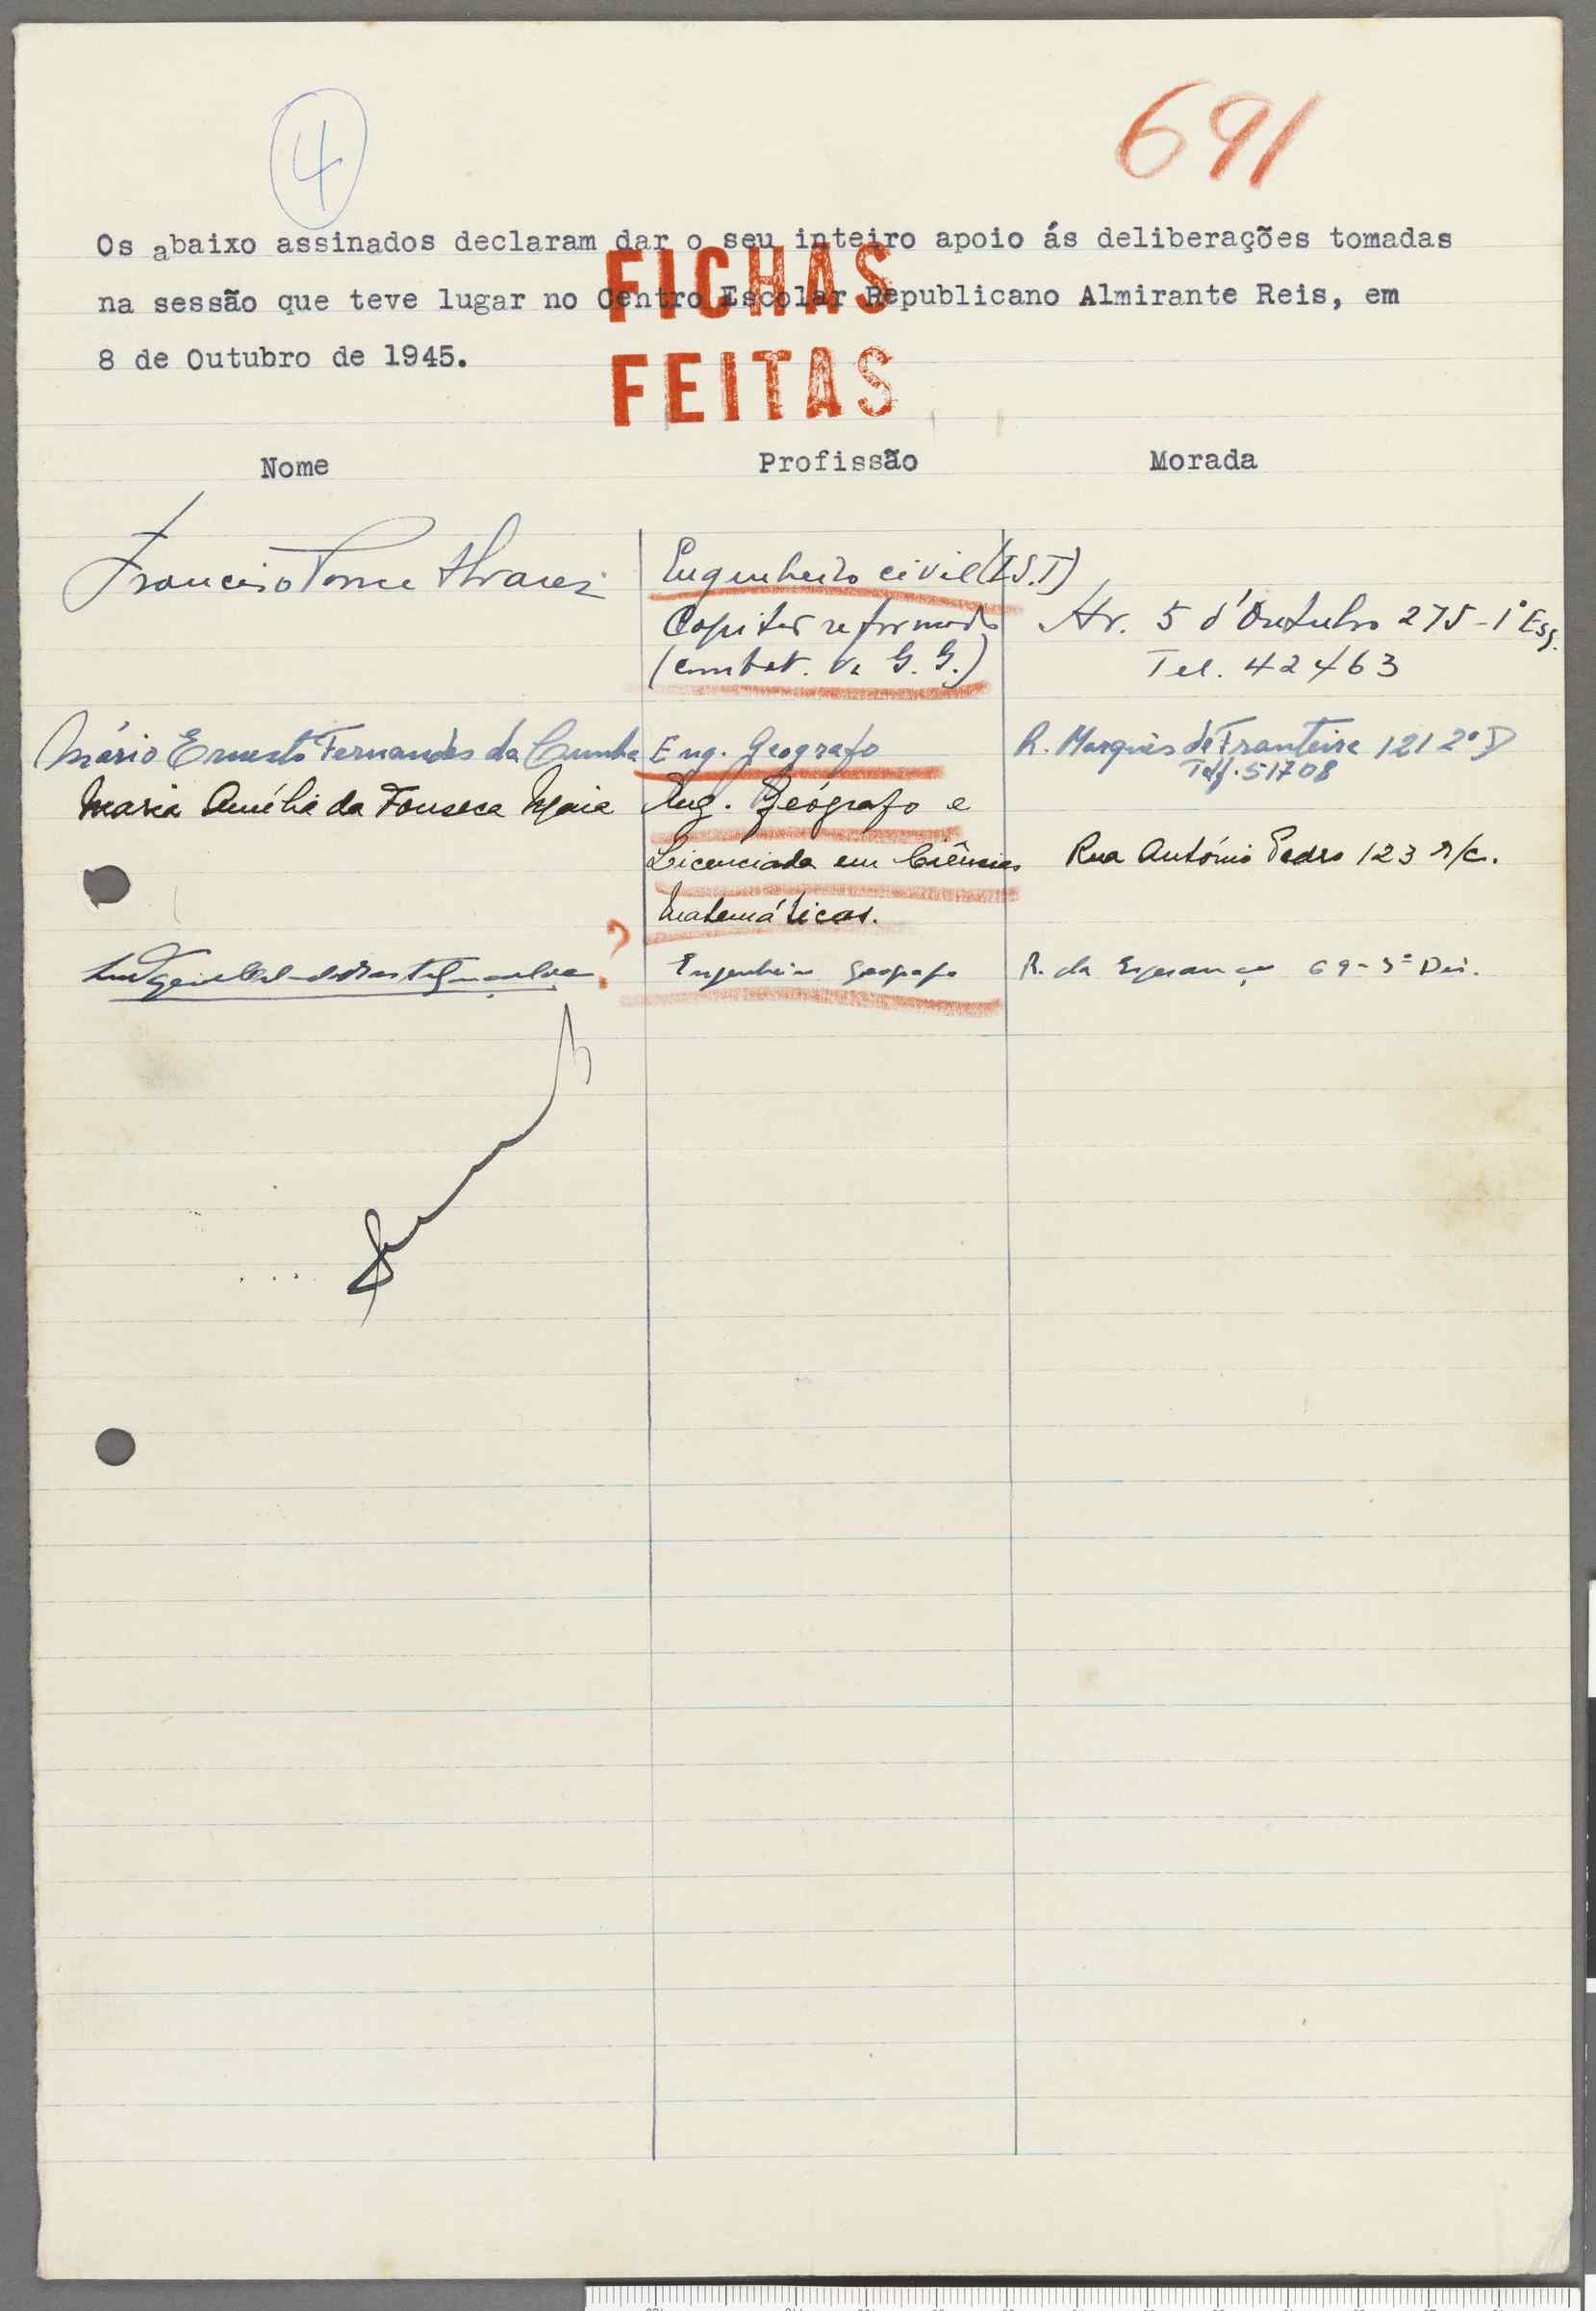 4
691
Os abaixo assinados declaram dar o seu inteiro apoio ás deliberações tomadas
na sessão que teve lugar no Centro Escolar Republicano Almirante Reis, em
8 de Outubro de 1945.
FICHAS
FEITAS
Nome Profissão Morada
Francisco Alvares
Engenheiro civil (I.S.T)
Capitão reformado
(combat. G. G.)
Av. 5 d'Outubro 275-1º Esq.
Tel. 42463
Mário Ernesto Fernandes da Cunha Eng. Geografo R. Marquês de Fronteira 121 2º D
Telf. 51708
Maria Amélia da Fonseca Maia Eng. Geógrafo e
Licenciada em Ciências Rua António Pedro 123 r/c.
Matemáticas.
? Engenheiro Geografo R. da Esperança 69-3º Dir.